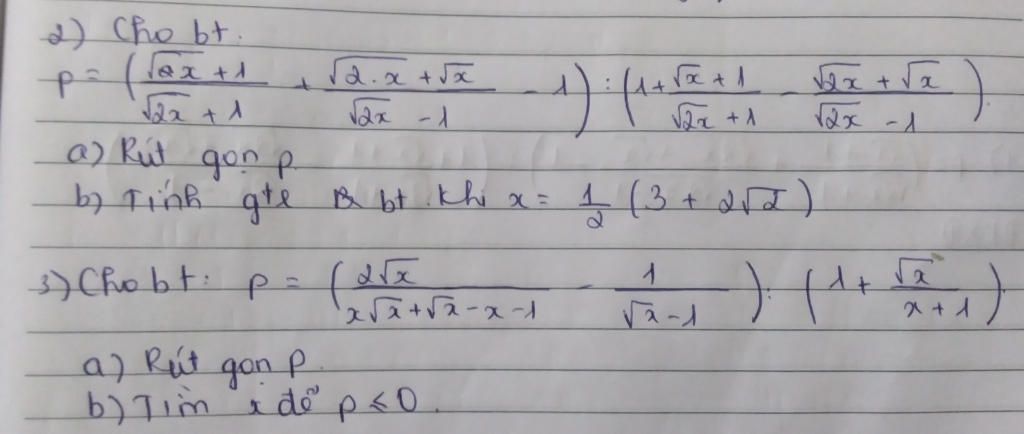 2) Cho bt:
P = (\frac{\sqrt{2x} + 1}{\sqrt{2x} + 1} + \frac{\sqrt{2.x} + \sqrt{x}}{\sqrt{2x} - 1} - 1) : (1 + \frac{\sqrt{x} + 1}{\sqrt{2x} + 1} - \frac{\sqrt{2x} + \sqrt{x}}{\sqrt{2x} - 1}).
a) Rút gọn P.
b) Tính gtr bt khi x = \frac{1}{2} (3 + 2\sqrt{2})
3) Cho bt: P = (\frac{2\sqrt{x}}{x\sqrt{x} + \sqrt{x} - x - 1} - \frac{1}{\sqrt{x} - 1}) : (1 + \frac{\sqrt{x}}{x + 1}).
a) Rút gọn P.
b) Tìm x để P ≤ 0.